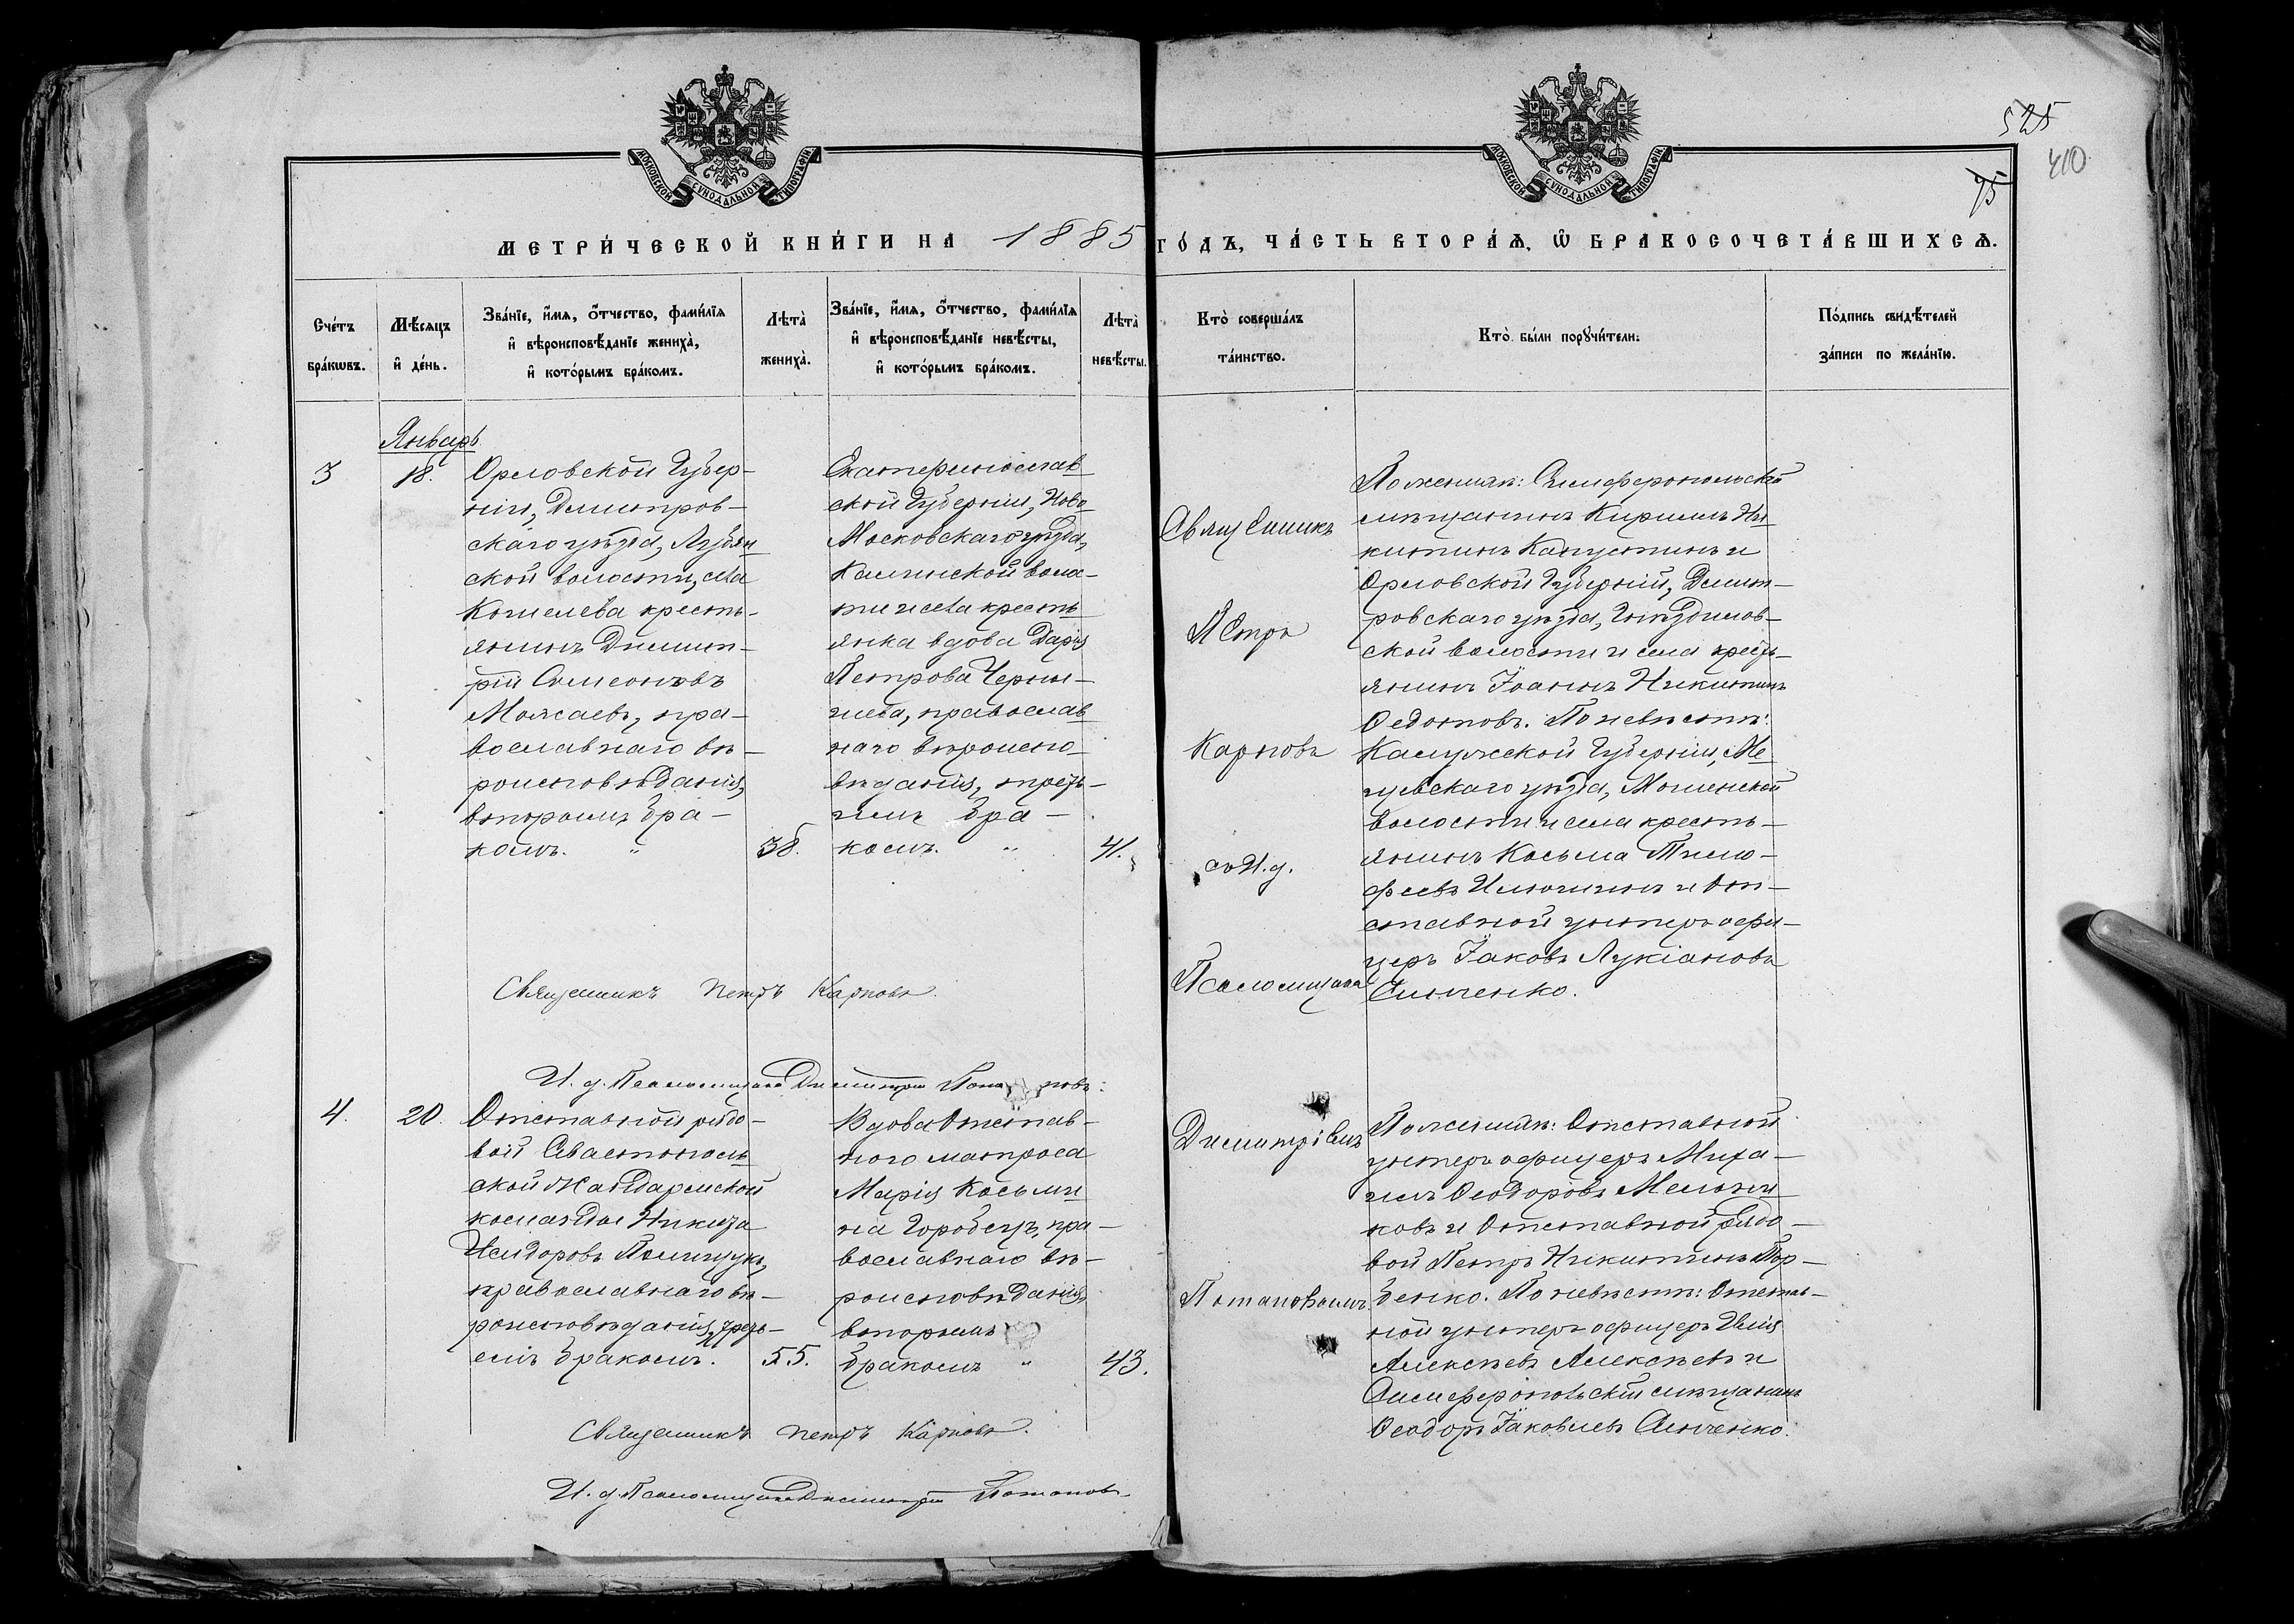 МОСКОВСКОЙ СУНОДАЛЬНОЙ ТИПОГРАФІИ
МОСКОВСКОЙ СУНОДАЛЬНОЙ ТИПОГРАФІИ
525
410
75
МЕТРИ́ЧЕСКОЙ КНИ́ГИ НА 1885 ГО́ДЪ, ЧА́СТЬ ВТОРА́Ѧ, Ѽ БРАКОСОЧЕТА́ВШИХСѦ.
Сче́тъ
бра́кωвъ.
Мѣ́сѧцъ
и҆ де́нь.
Зва́нїе, и҆́мѧ, ѻ҆́тчество, фами́лїѧ
и҆ вѣроисповѣ́данїе жениха̀,
и҆ кото́рымъ бра́комъ.
Лѣта̀
жениха̀.
Зва́нїе, и҆́мѧ, ѻ҆́тчество, фами́лїѧ
и҆ вѣроисповѣ́данїе невѣ́сты,
и҆ кото́рымъ бра́комъ.
Лѣта̀
невѣ́сты.
Кто̀ соверша́лъ
та́инство.
Кто̀ бы́ли порꙋчи́тели.
По́дпись свидѣ́телей
за́писи по жела́нїю.
Январь
3
18.
Орловской Губер-
ніи, Дмитров-
скаго уѣзда,
ской волости, села
Кошелева кресть-
янинъ Димит-
рій Симеоновъ
Можаевъ, пра-
вославнаго вѣ-
роисповѣданія,
вторымъ бра-
комъ. "
38.
Екатеринослав
ской Губерніи, Ново
Московскаго уѣзда,
воло-
сти и села кресть
янка вдова Дарія
Петрова Черны-
шева, православ
наго вѣроиспо
вѣданія, треть-
имъ бра-
комъ. "
41.
Священникъ
Петръ
Карповъ
съ И. д.
Псаломщика
По женихѣ: Симферопольскій
мѣщанинъ Кириллъ Ни
китинъ Капустинъ и
Орловской Губерніи, Дмит-
ровскаго уѣзда, Гнѣздилов-
ской волости и села кресть-
янинъ Іоаннъ Никитинъ
Федотовъ. По невѣстѣ:
Калужской Губерніи, Ме
щевскаго уѣзда,
волости и села кресть-
янинъ Косьма Тимо-
феевъ Илюшинъ и От-
ставной унтеръ офи-
церъ Іаковъ Лукіановъ
Синченко.
Священникъ Петръ Карповъ.
И. д. Псаломщика Димитрій Потаповъ:
4.
20.
Отставной рядо-
вой Севастополь
ской Жандармской
команды Никита
Исидоровъ Полищукъ,
православнаго вѣ-
роисповѣданія, треть-
имъ бракомъ.
55.
Вдова Отстав-
ного матроса
Марія Косьми
на Городецъ, пра-
вославнаго вѣ-
роисповѣданія,
вторымъ
бракомъ "
43.
Димитріемъ
Потаповымъ.
По женихѣ: Отставной
унтеръ офицеръ Миха-
илъ Ѳеодоровъ Мельни
ковъ и Отставной рядо-
вой Петръ Никитинъ Гор-
бенко. По невѣстѣ: Отстав-
ной унтеръ офицеръ Илія
Алексѣевъ Алексѣевъ и
Симферопольскій мѣщанинъ
Ѳеодоръ Іаковлевъ Синченко.
Священникъ Петръ Карповъ.
И. д. Псаломщика Димитрій Потаповъ